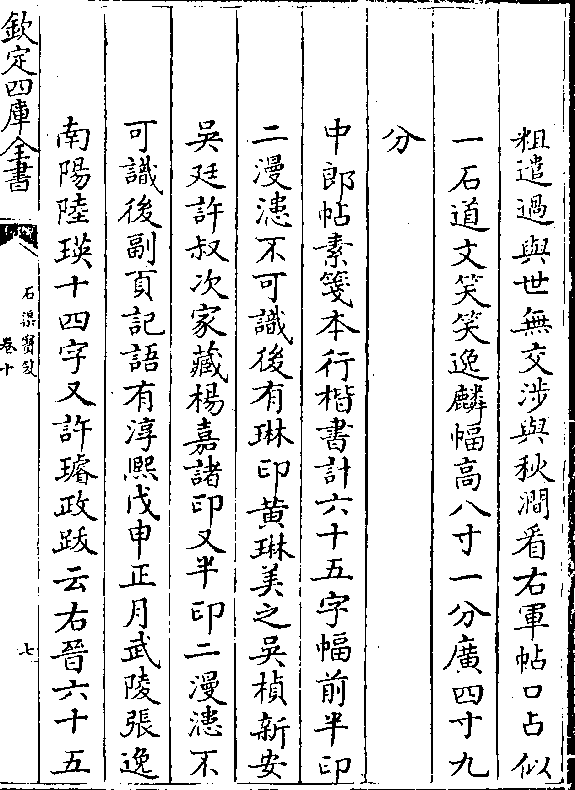 粗遣過與世無交涉與秋澗看右軍帖口占似
一石道文笑笑逸麟幅高八寸一分廣四寸九
分
中郎帖素箋本行楷書計六十五字幅前半印
二漫漶不可識後有琳印黄琳美之吳楨新安
吳廷許叔次家藏楊嘉諸印又半印二漫漶不
可識後副頁記語有淳熙戊申正月武陵張逸
南陽陸瑛十四字又許璿政跋云右晉六十五
欽定四庫全書
石渠寶笈
卷十
七